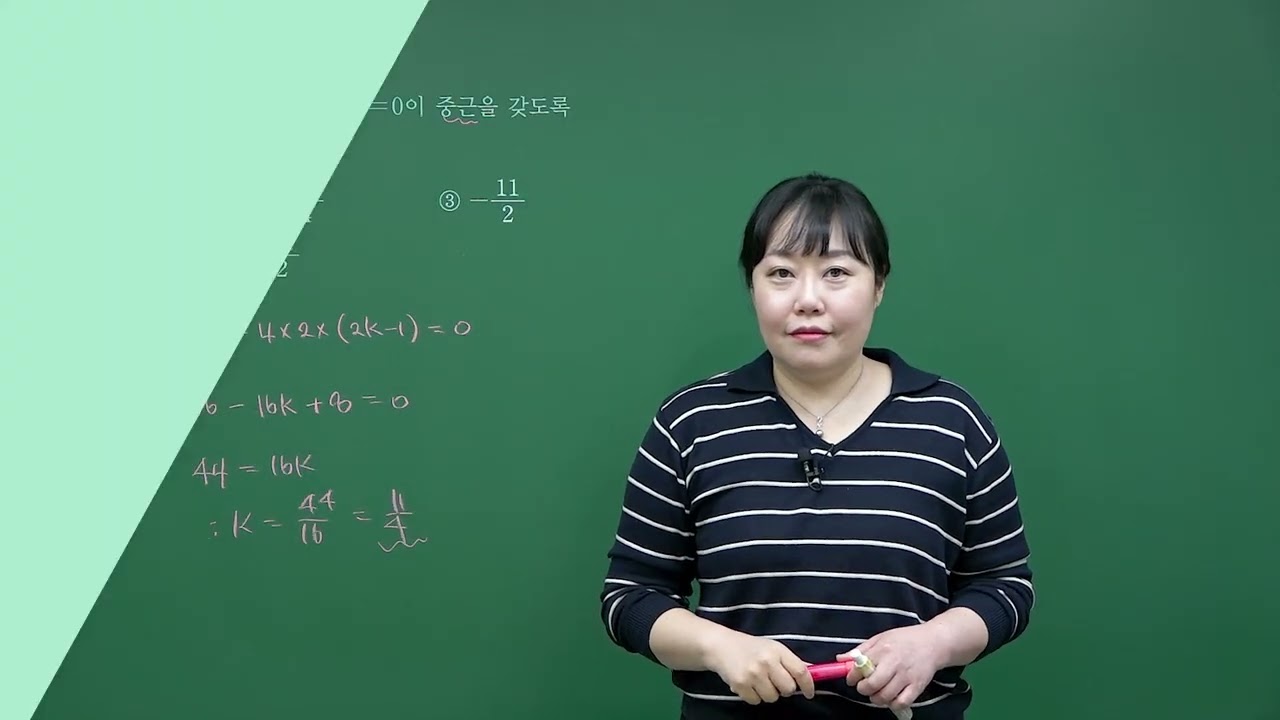 =0이 중근을 갖도록
③ -11/2
2
4×2×(2k-1)=0
6-16k+8=0
44=16k
∴k=44/16=11/4